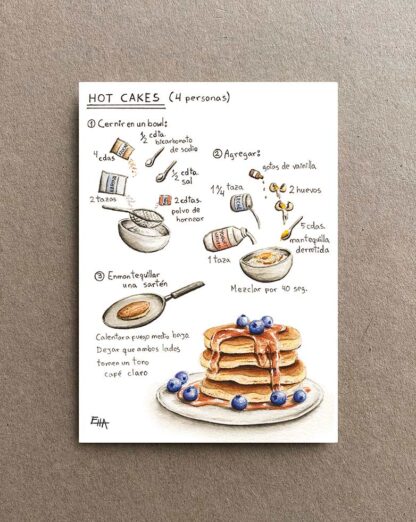 HOT CAKES (4 personas)
① Cernir en un bowl:
1/2 cdta.
bicarbonato
de sodio
4
cdas
1/2 cdta.
sal
2 tazas
2 cdtas.
polvo de
hornear
② Agregar:
gotas de vainilla
1 1/4 taza
2 huevos
5 cdas.
mantequilla
derretida
1 taza
Mezclar por 90 seg.
③ Enmantequillar
una sartén
Calentar a fuego medio bajo
Dejar que ambos lados
tomen un tono
café claro.